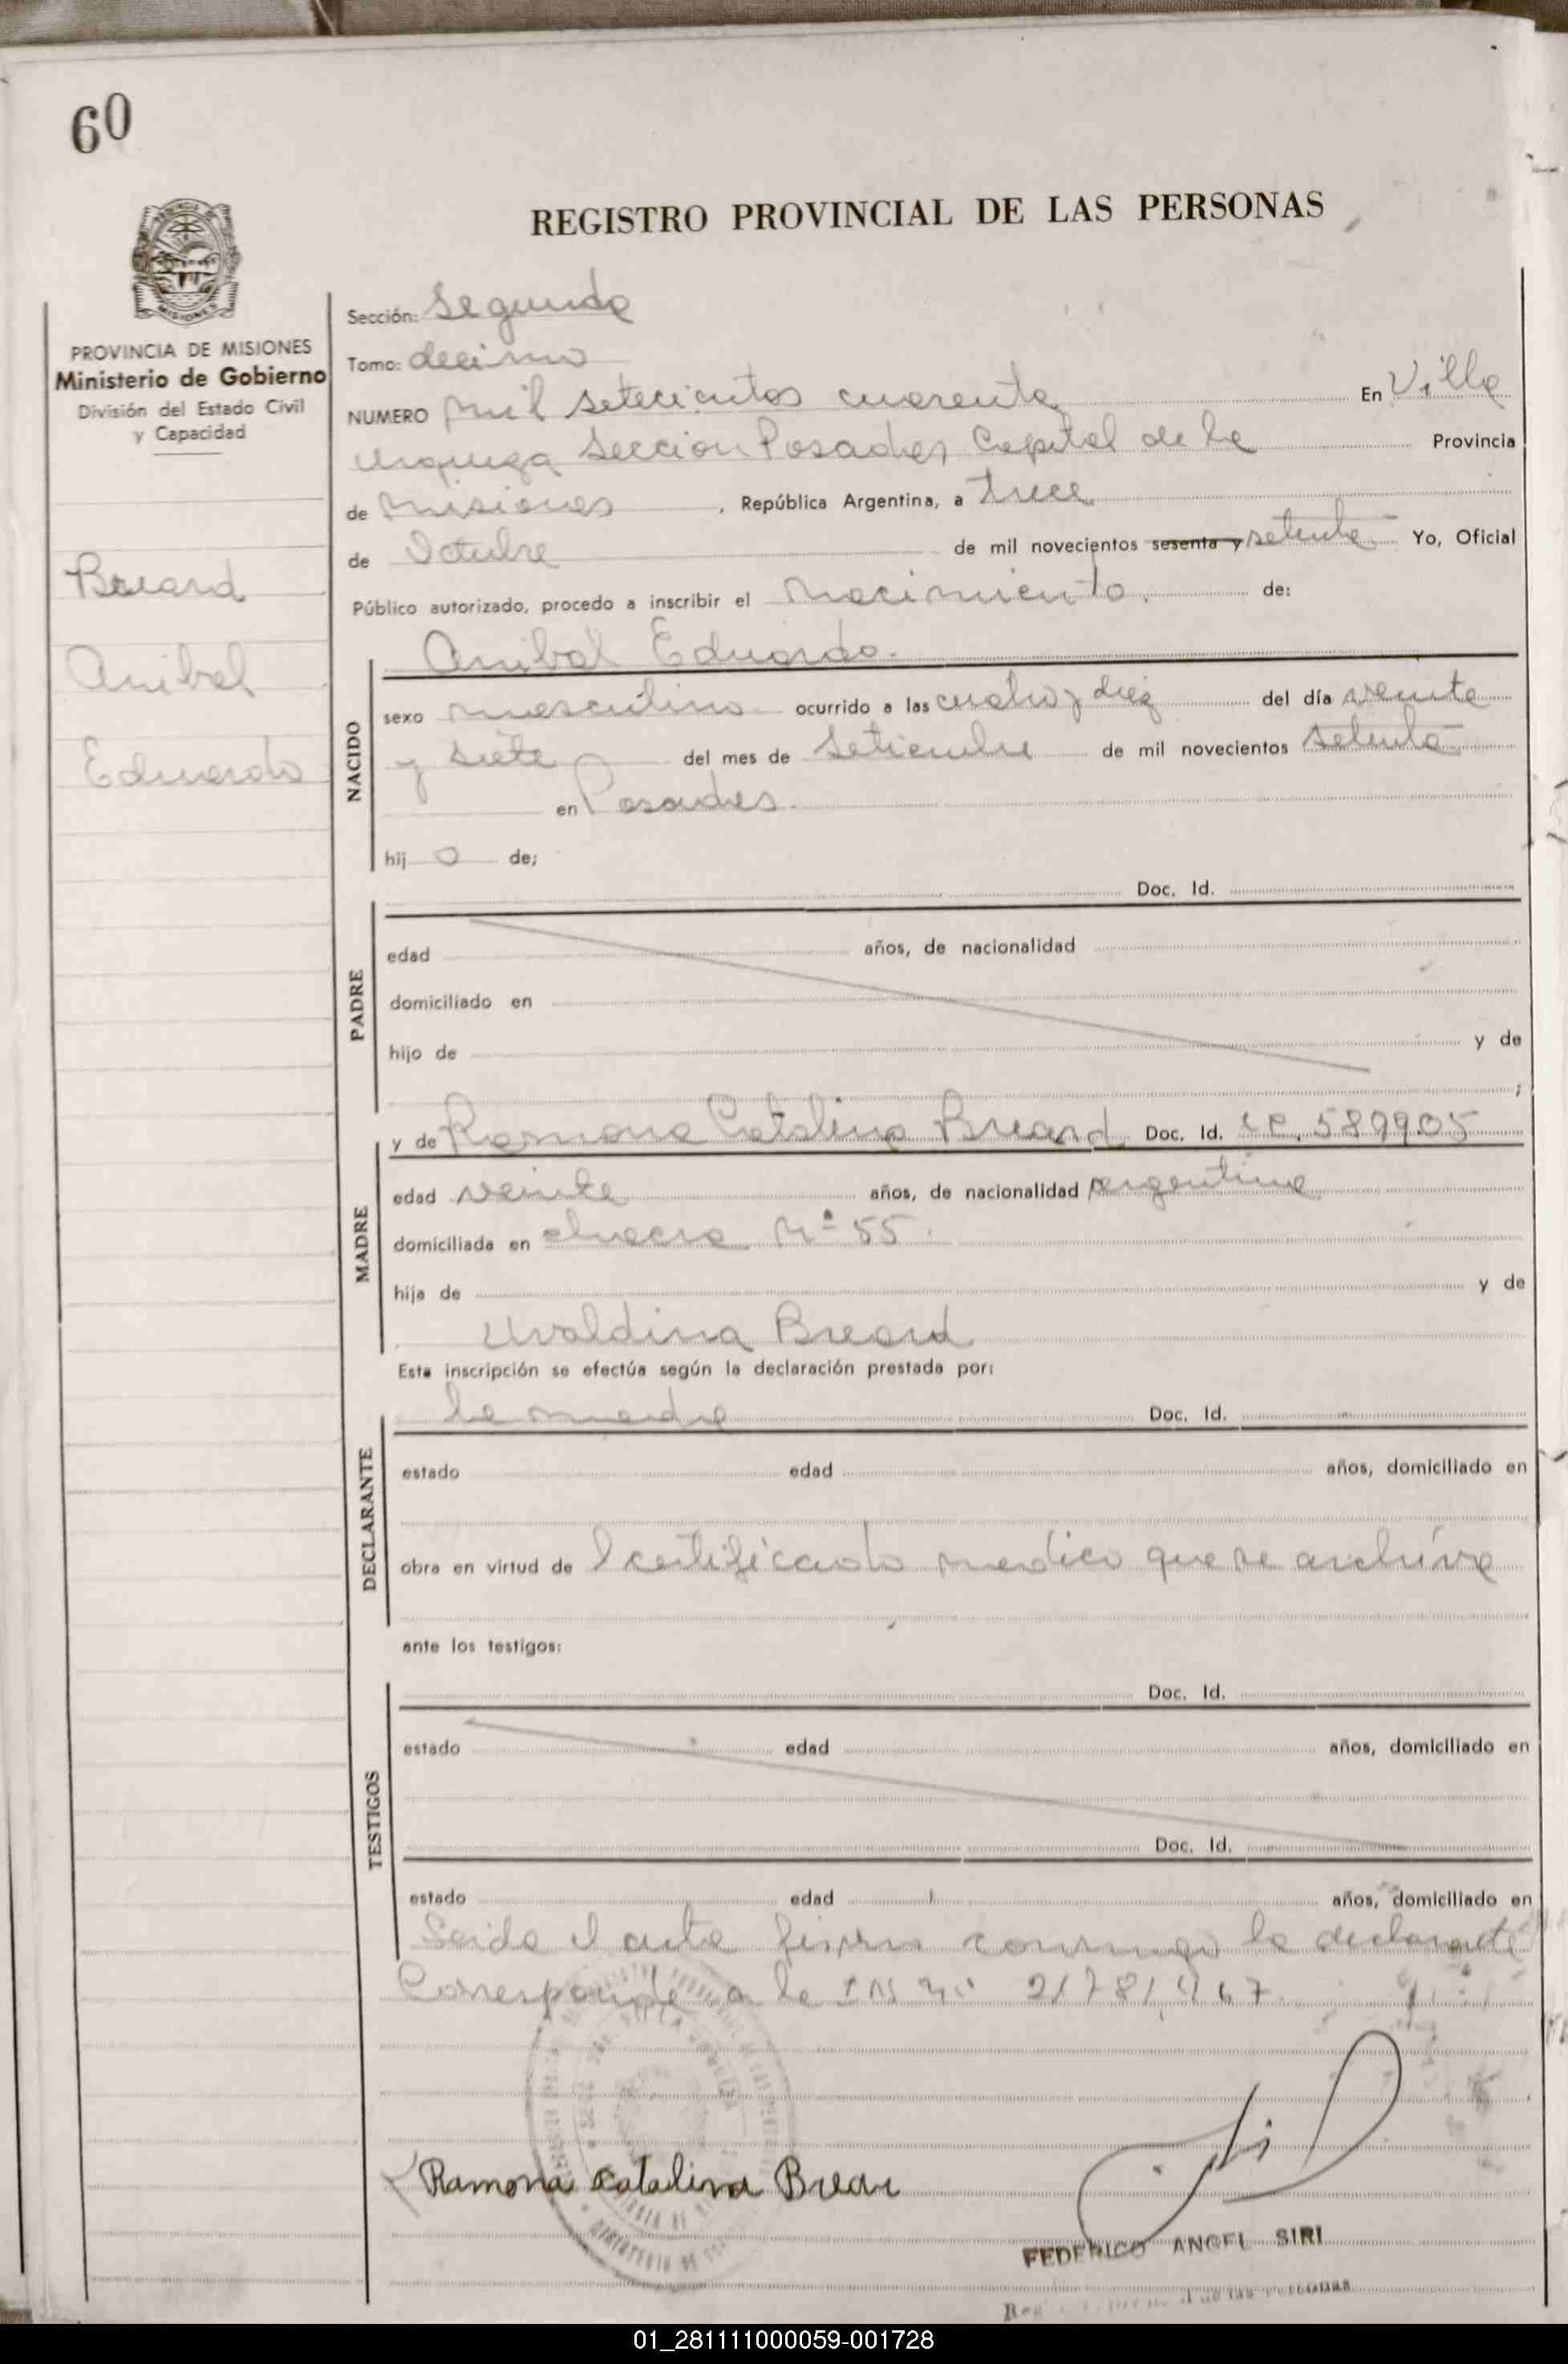 60
REGISTRO PROVINCIAL DE LAS PERSONAS
MISIONES
PROVINCIA DE MISIONES
Ministerio de Gobierno
División del Estado Civil
y Capacidad
Breard
Anibal
Eduardo
Sección: Segunda
Tomo: decimo
NUMERO mil setecientos cuarenta En Villa
Urquiza Seccion Posadas Capital de la Provincia
de Misiones , República Argentina, a trece
de Octubre de mil novecientos sesenta y setenta Yo, Oficial
Público autorizado, procedo a inscribir el nacimiento. de:
Anibal Eduardo.
NACIDO
sexo masculino ocurrido a las cuatro y diez del día veinte
y siete del mes de Setiembre de mil novecientos setenta
en Posadas.
hij o de;
Doc. Id.
PADRE
edad años, de nacionalidad
domiciliado en
hijo de y de
;
y de Ramona Catalina Breard Doc. Id. 589905
MADRE
edad veinte años, de nacionalidad argentina
domiciliada en chacra Nº 55.
hija de y de
Uvaldina Breard
Esta inscripción se efectúa según la declaración prestada por:
la madre Doc. Id.
DECLARANTE
estado edad años, domiciliado en
obra en virtud de l certificado medico que se archiva
ante los testigos:
Doc. Id.
TESTIGOS
estado edad años, domiciliado en
Doc. Id.
estado edad años, domiciliado en
Leida el acta firma conmigo la declarante
Corresponde a la
Ramona Catalina Brear
FEDERICO ANGEL SIRI
de las Personas
01_281111000059-001728